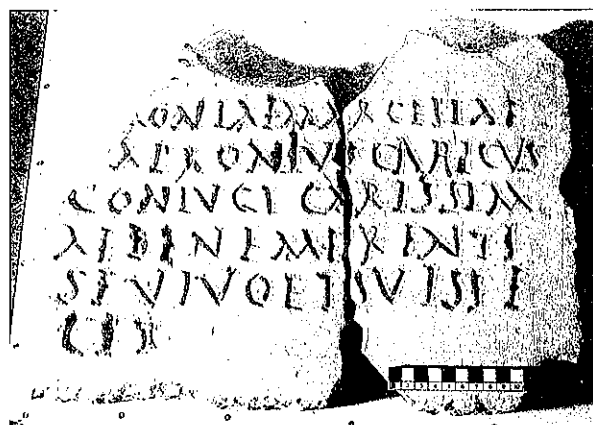 ONIAE MARCELLAE
APRONIVS CARICVS
CONIVGI CARISSIM
AE BENEMERENTI
SE VIVO ET SVIS FE
CIT